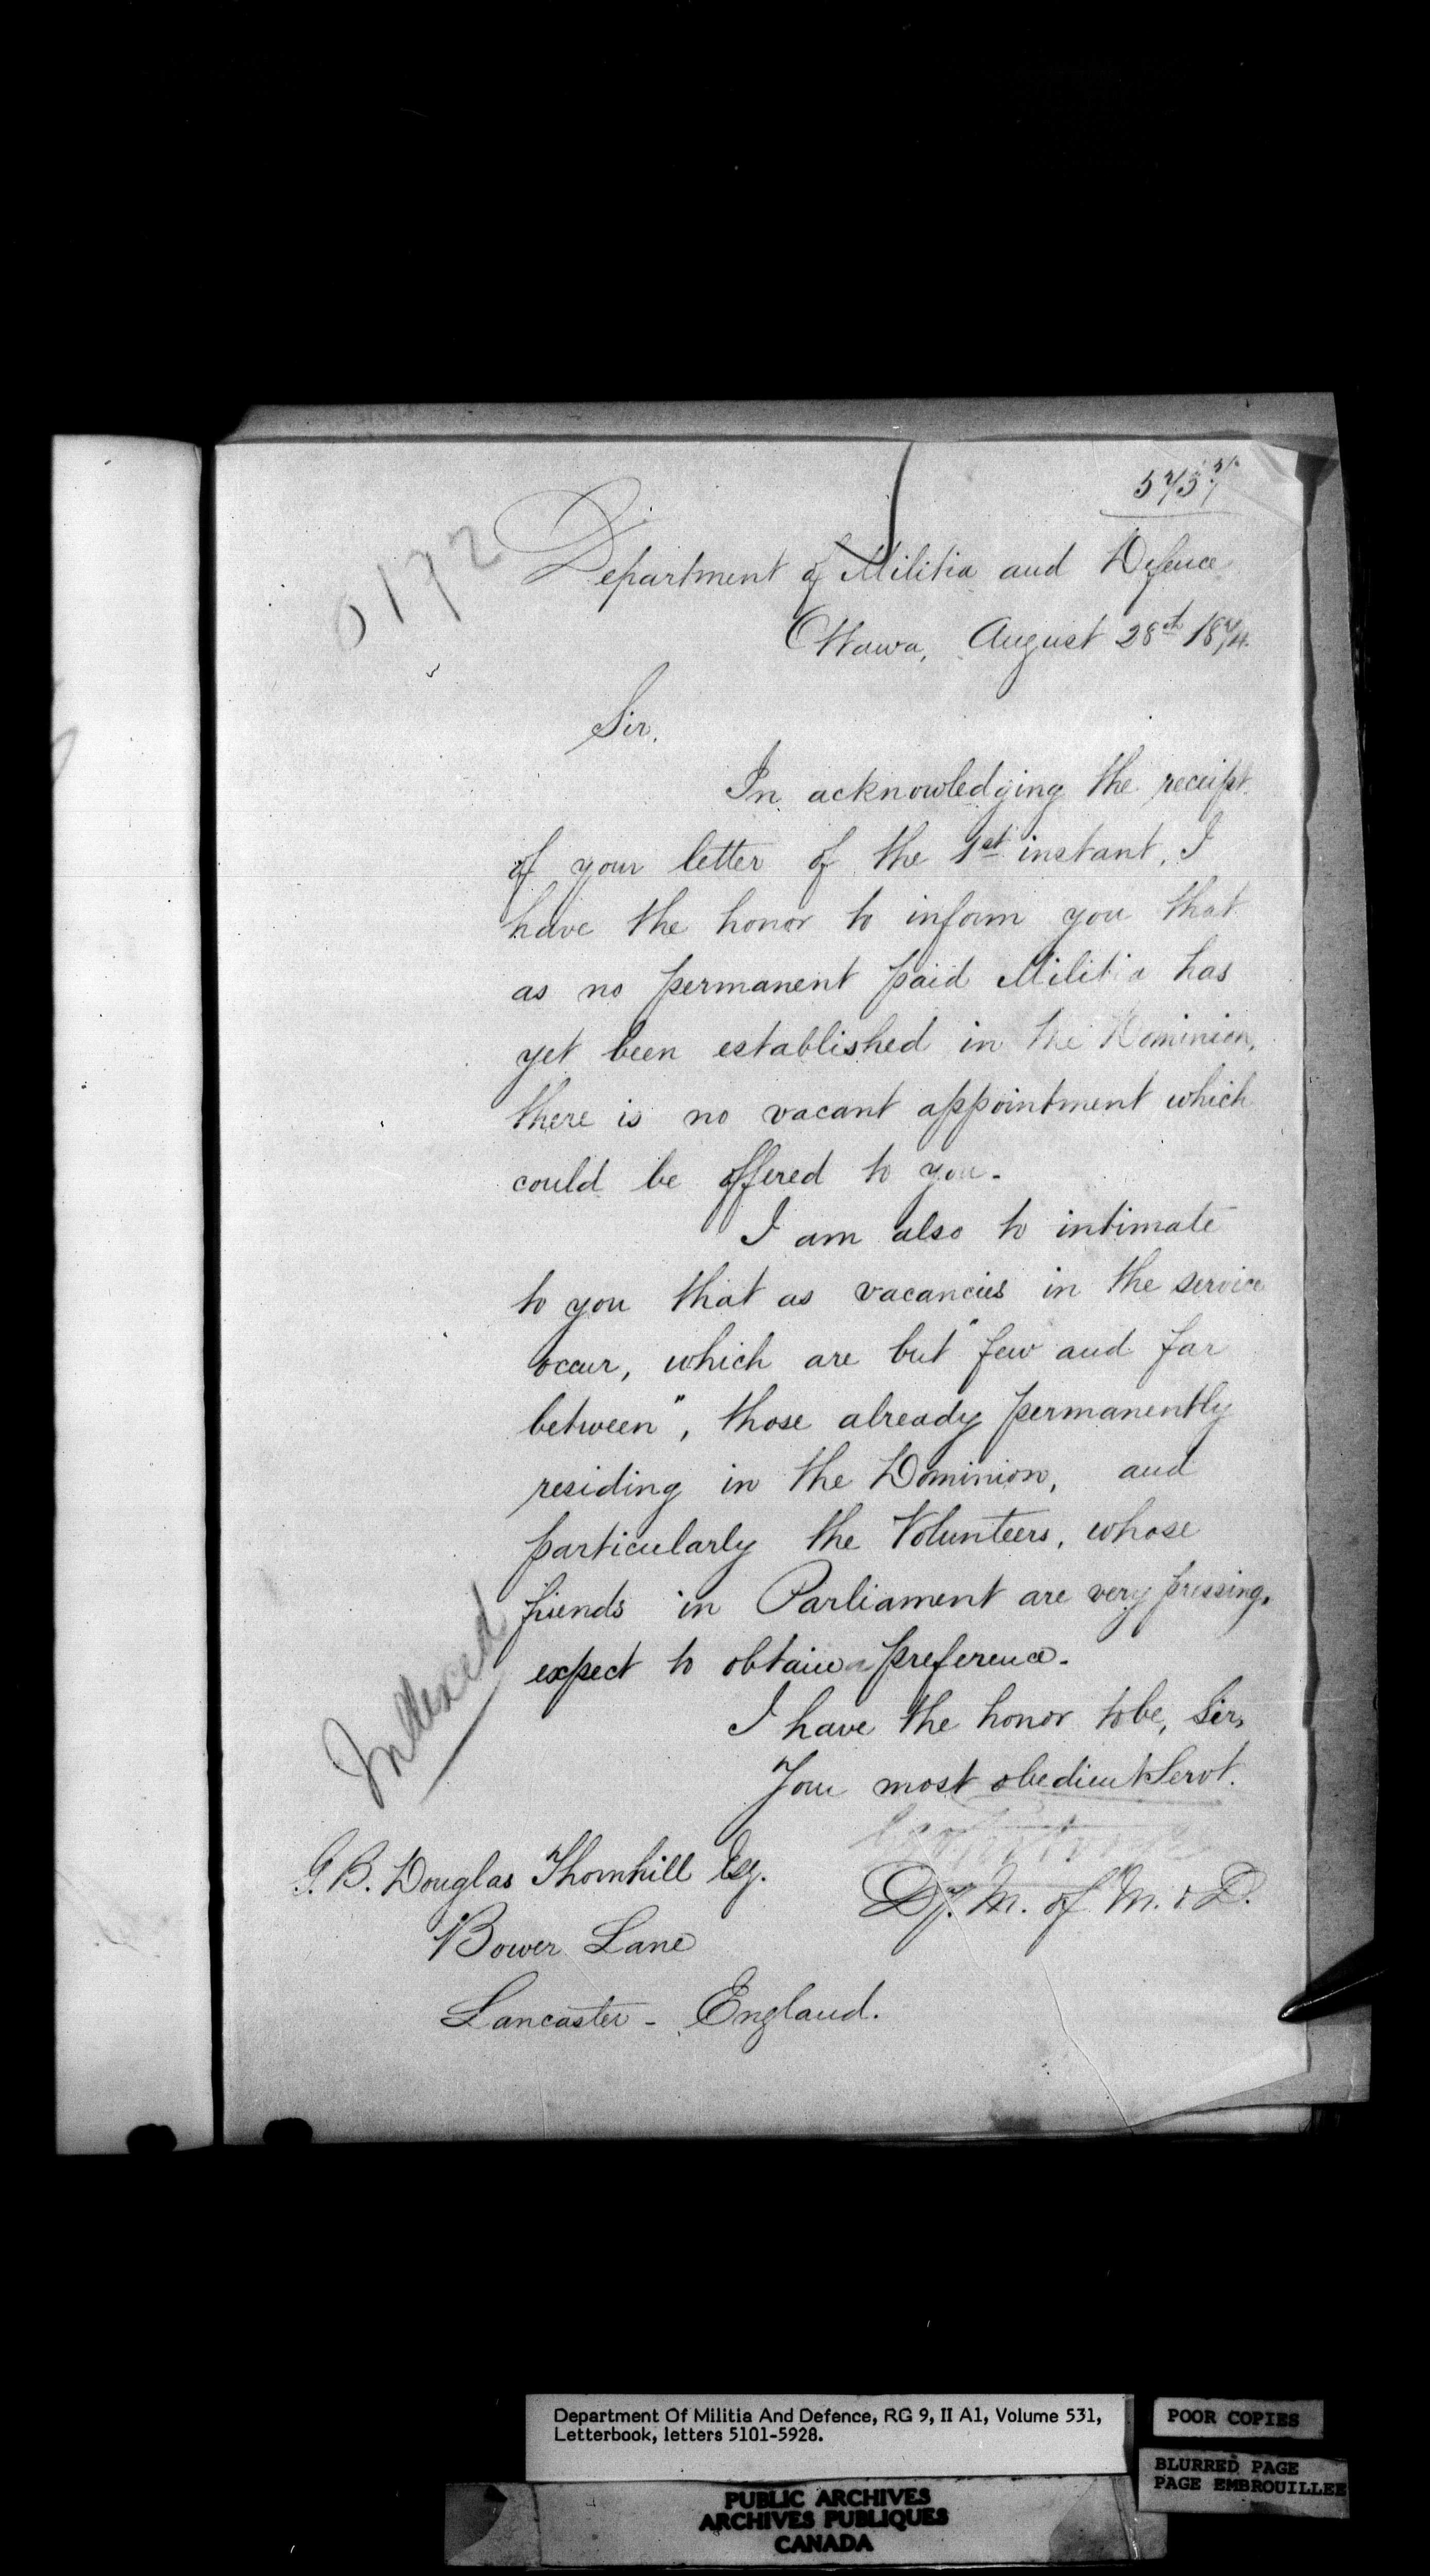 5757
0192
Department of Militia and Defence
Ottawa, August 28th 1874.
Sir,
In acknowledging the receipt
of your letter of the 1st instant, I
have the honor to inform you that
as no permanent paid Militia has
yet been established in the Dominion,
there is no vacant appointment which
could be offered to you.
I am also to intimate
to you that as vacancies in the service
occur, which are but "few and far
between", those already permanently
residing in the Dominion, and
particularly the Volunteers, whose
friends in Parliament are very pressing,
expect to obtain a preference.
I have the honor to be, Sir,
Your most obedient Servt.
Dy. M. of M. & D.
Indexed
G. B. Douglas Thornhill Esq.
Bower Lane
Lancaster - England.
Department Of Militia And Defence, RG 9, II A1, Volume 531,
Letterbook, letters 5101-5928.
POOR COPIES
BLURRED PAGE
PAGE EMBROUILLEE
PUBLIC ARCHIVES
ARCHIVES PUBLIQUES
CANADA